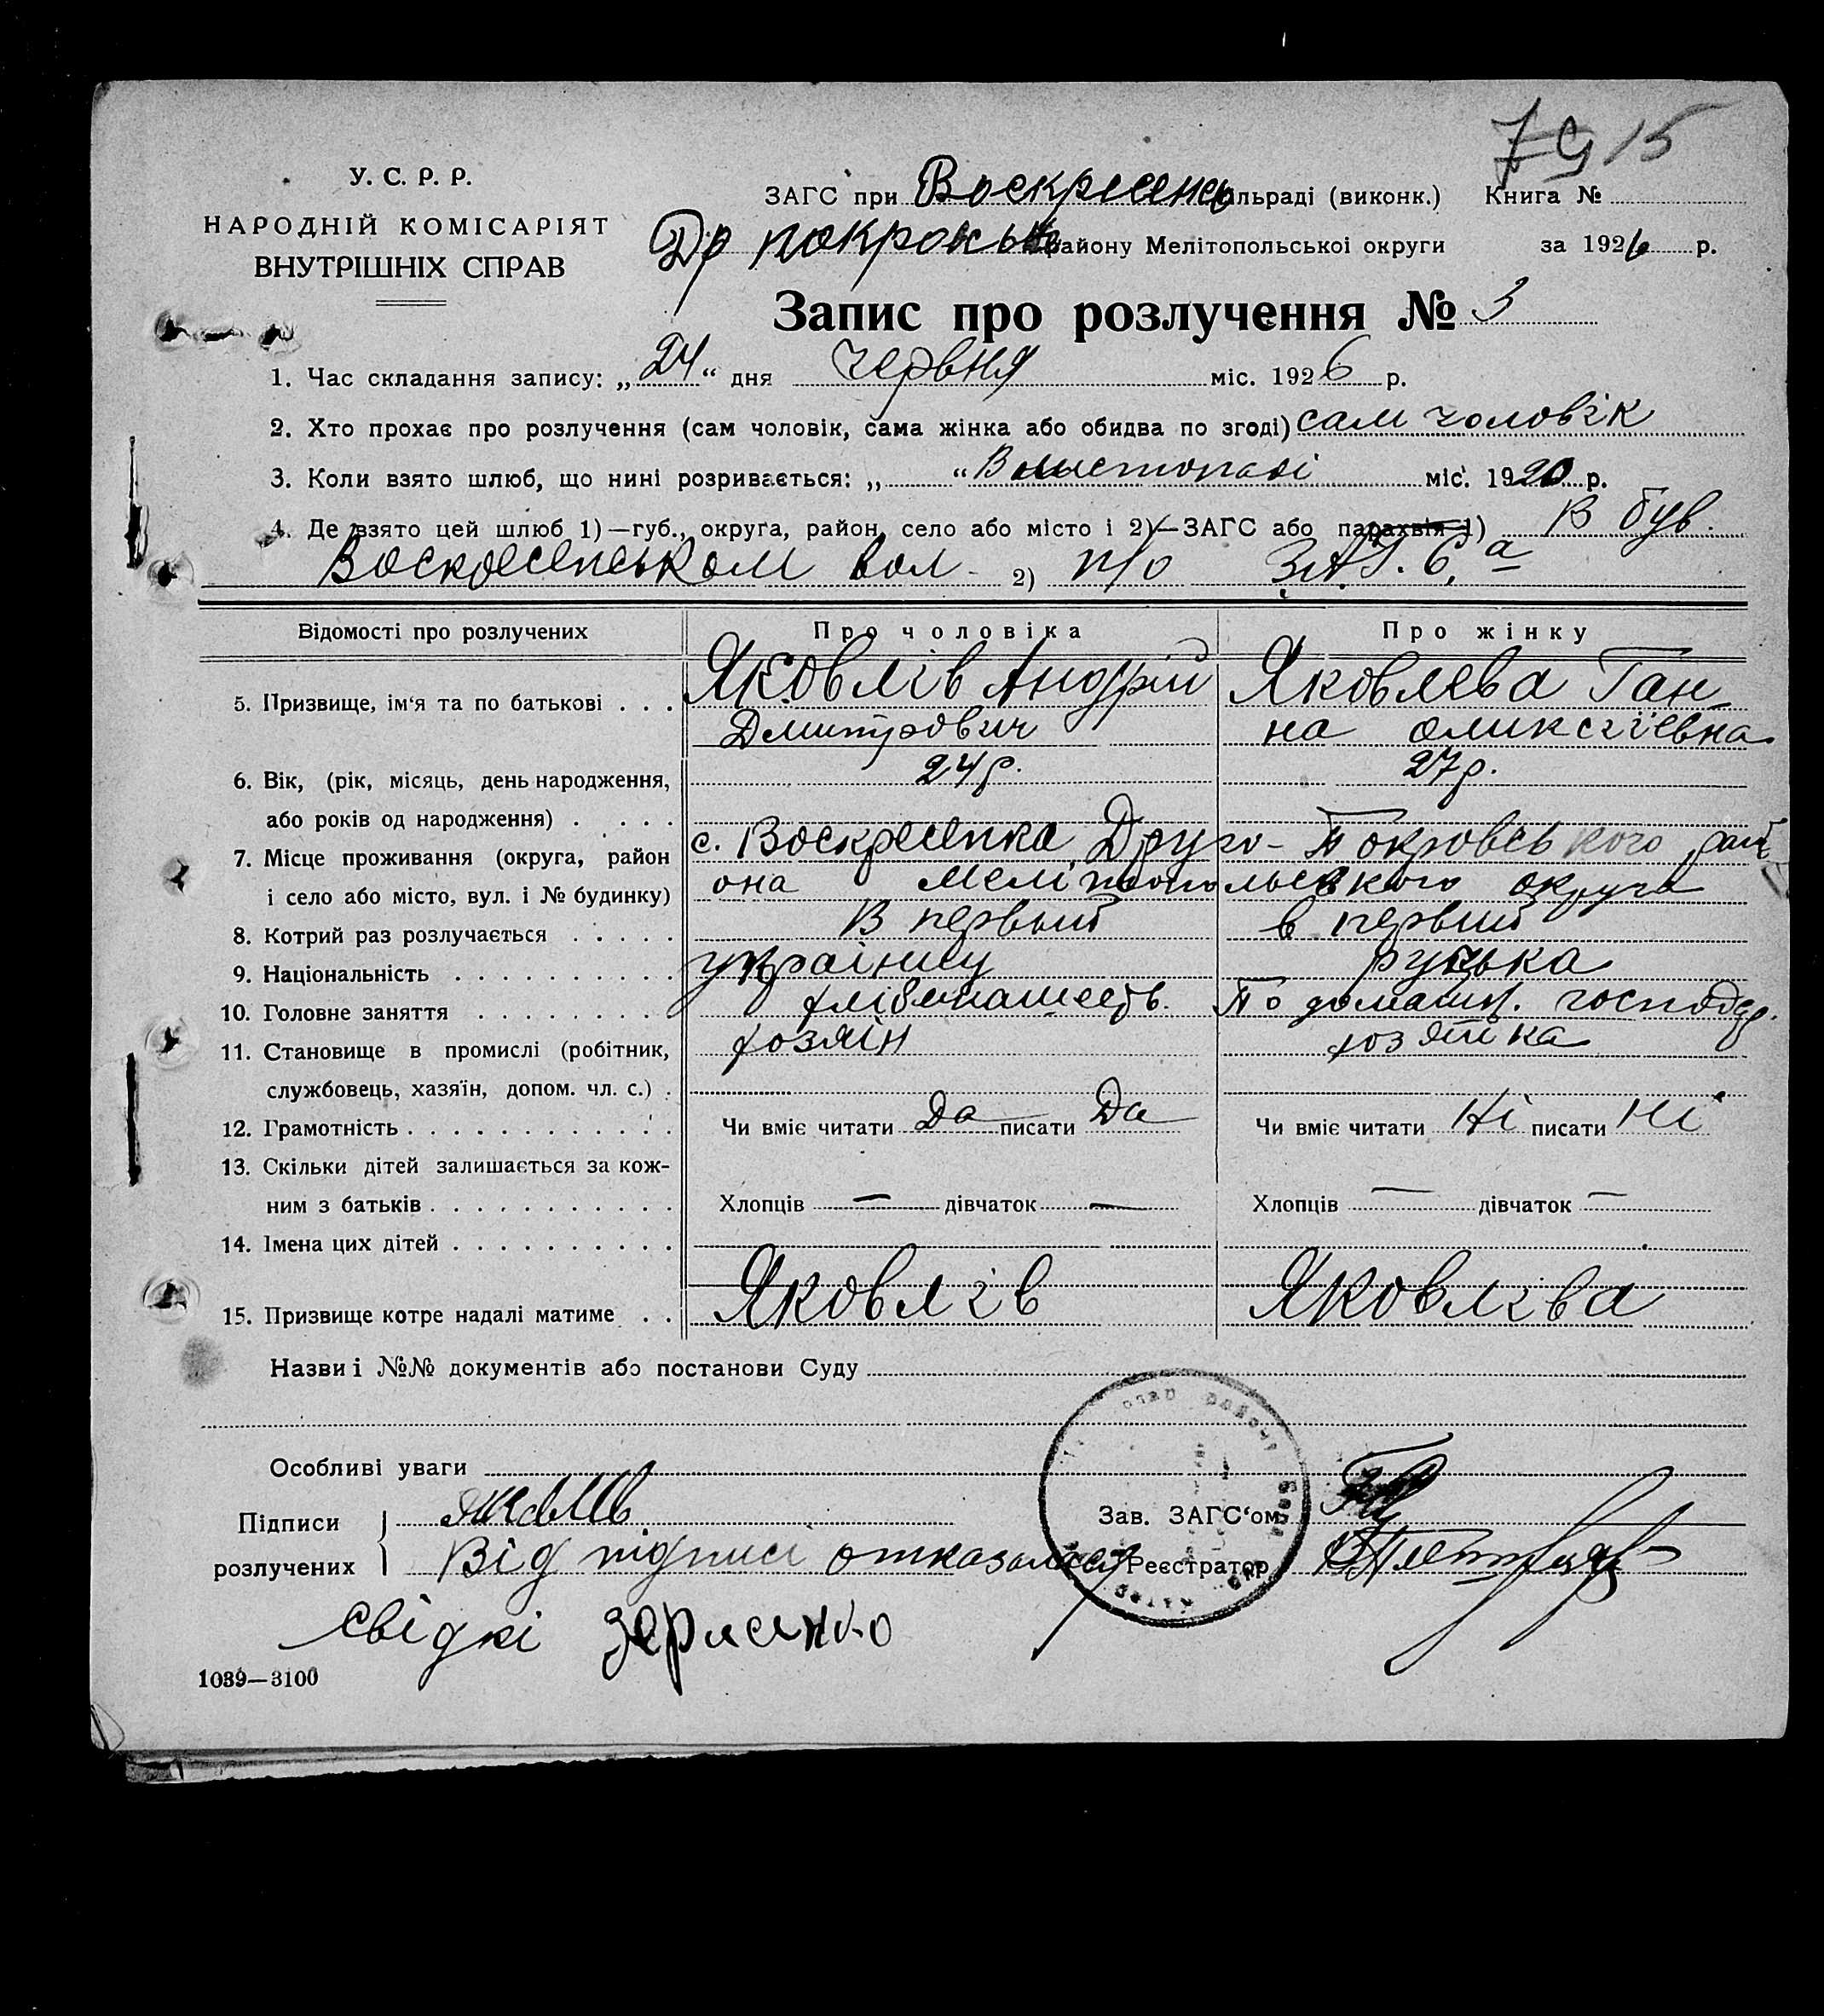 79 15
У. С. Р. Р.
НАРОДНІЙ КОМІСАРІЯТ
ВНУТРІШНІХ СПРАВ
ЗАГС при Воскресенс ільраді (виконк.) Книга №
Др покровськ району Мелітопольської округи за 1926 р.
Запис про розлучення № 3
1. Час складання запису: „ 24 “ дня червня міс. 1926 р.
2. Хто прохає про розлучення (сам чоловік, сама жінка або обидва по згоді) сам чоловік
3. Коли взято шлюб, що нині розривається: „ “ В листопаді міс. 1920 р.
4. Де взято цей шлюб 1)—губ., округа, район, село або місто і 2)—ЗАГС або парахвія 1) В був.
Воскресенськом вол. 2) п/о З.А.Г.С.а
Відомості про розлучених Про чоловіка Про жінку
5. Призвище, ім‘я та по батькові . . . Яковлів Андрій Яковлева Ган-
Дмитрович на Оликсіївна
6. Вік, (рік, місяць, день народження, 24 р. 27 р.
або років од народження) . . . .
7. Місце проживання (округа, район с. Воскресенка Друго-Покровського рай
і село або місто, вул. і № будинку) она Мелітопольського округа
8. Котрий раз розлучається . . . . . В первий в первий
9. Національність . . . . . . . . . . українец руська
10. Головне заняття . . . . . . . . хлібопашест. По домашн. господар.
11. Становище в промислі (робітник, хозяїн хозяйка
службовець, хазяїн, допом. чл. с.) .
12. Грамотність . . . . . . . . . . . . Чи вміє читати Да писати Да Чи вміє читати Ні писати Ні
13. Скільки дітей залишається за кож-
ним з батьків . . . . . . . . . . . Хлопців — дівчаток — Хлопців — дівчаток —
14. Імена цих дітей . . . . . . . . . .
15. Призвище котре надалі матиме . . Яковлів Яковліва
Назви і №№ документів або постанови Суду
Особливі уваги
Підписи Яковлів Зав. ЗАГС‘ом
розлучених Від підписі отказалась Реєстратор
свідкі
1039—3100